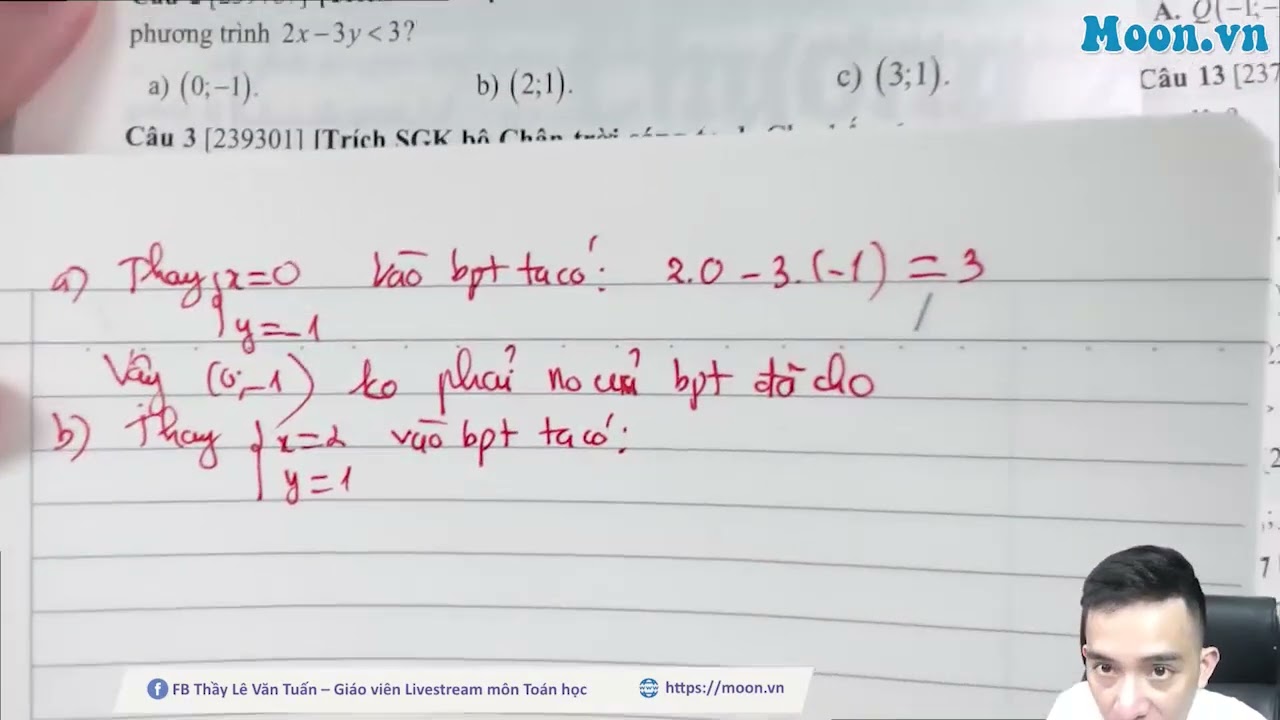 Moon.vn
A. Q(−1;
phương trình 2x − 3y < 3?
a) (0;−1). b) (2;1). c) (3;1).
Câu 13 [237
Câu 3 [239301] [Trích SGK bộ Chân trời
a) Thay { x = 0 vào bpt ta có: 2.0 − 3.(−1) = 3
y = −1
Vậy (0;−1) ko phải no của bpt đã cho
b) Thay { x = 2 vào bpt ta có:
y = 1
FB Thầy Lê Văn Tuấn – Giáo viên Livestream môn Toán học
https://moon.vn